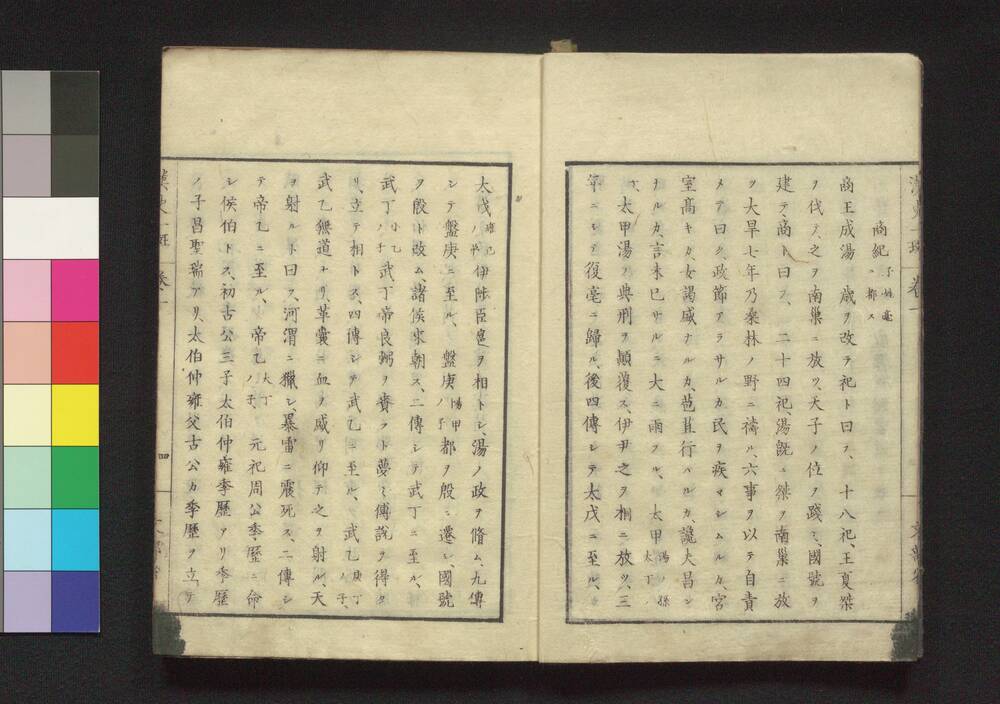 商紀 子姓亳
ニ都ス
商王成湯 歳ヲ改テ祀ト曰フ、十八祀、王夏桀
ヲ伐テ、之ヲ南巢ニ放ツ、天子ノ位ヲ踐ミ、國號ヲ
建テ、商ト曰フ、 二十四祀、湯既ニ桀ヲ南巢ニ放
ツ大旱七年乃桑林ノ野ニ禱ル、六事ヲ以テ自責
メテ曰ク、政節アラサルカ民ヲ疾マシムルカ、宮
室高キカ、女謁盛ナルカ、苞苴行ハルカ、讒夫昌ン
ナルカ、言未已サルニ大ニ雨フル、 太甲 湯ノ孫
太丁ノ
子、 太甲湯ノ典刑ヲ顚覆ス、伊尹之ヲ桐ニ放ツ、三
年ニシテ復亳ニ歸ル、後四傳シテ太戊ニ至ル、
太戊 雍己
ノ弟 伊陟臣扈ヲ相トシ、湯ノ政ヲ脩ム、九傳
シテ盤庚ニ至ル、 盤庚 陽甲
ノ子 都ヲ殷ニ遷シ、國號
ヲ殷ト改ム諸侯來朝ス、二傳シテ武丁ニ至ル、
武丁 小乙
ノ子 武丁帝良弼ヲ賚フト夢ミ傅說ヲ得タ
リ、立テ相トス、四傳シテ武乙ニ至ル、 武乙 庚丁
ノ子、
武乙無道ナリ、革囊ニ血ヲ盛リ仰テ之ヲ射ル、天
ヲ射ルト曰フ、河渭ニ獵シ、暴雷ニ震死ス、二傳シ
テ帝乙ニ至ル、 帝乙 太丁
ノ子、 元祀周公季歷ニ命
シ侯伯トス、初古公三子太伯仲雍季歷アリ季歷
ノ子昌聖瑞アリ、太伯仲雍父古公カ季歷ヲ立テ
四